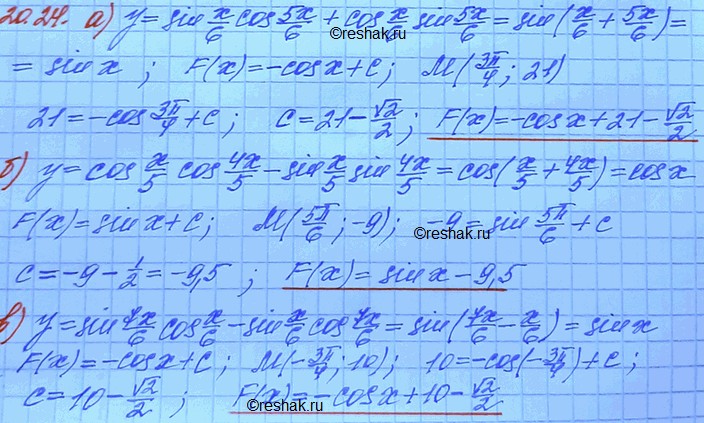 20.24. а) y = sin x/6 cos 5x/6 + cos x/6 sin 5x/6 = sin(x/6 + 5x/6) =
©reshak.ru
= sin x ; F(x) = -cos x + C ; M(3π/4 ; 21)
21 = -cos 3π/4 + C ; C = 21 - √2/2 ; F(x) = -cos x + 21 - √2/2
б) y = cos x/5 cos 4x/5 - sin x/5 sin 4x/5 = cos(x/5 + 4x/5) = cos x
F(x) = sin x + C ; M(5π/6 ; -9) ; -9 = sin 5π/6 + C
©reshak.ru
C = -9 - 1/2 = -9,5 ; F(x) = sin x - 9,5
в) y = sin 7x/6 cos x/6 - sin x/6 cos 7x/6 = sin(7x/6 - x/6) = sin x
F(x) = -cos x + C ; M(-3π/4 ; 10) ; 10 = -cos(-3π/4) + C ;
C = 10 - √2/2 ; F(x) = -cos x + 10 - √2/2
©reshak.ru